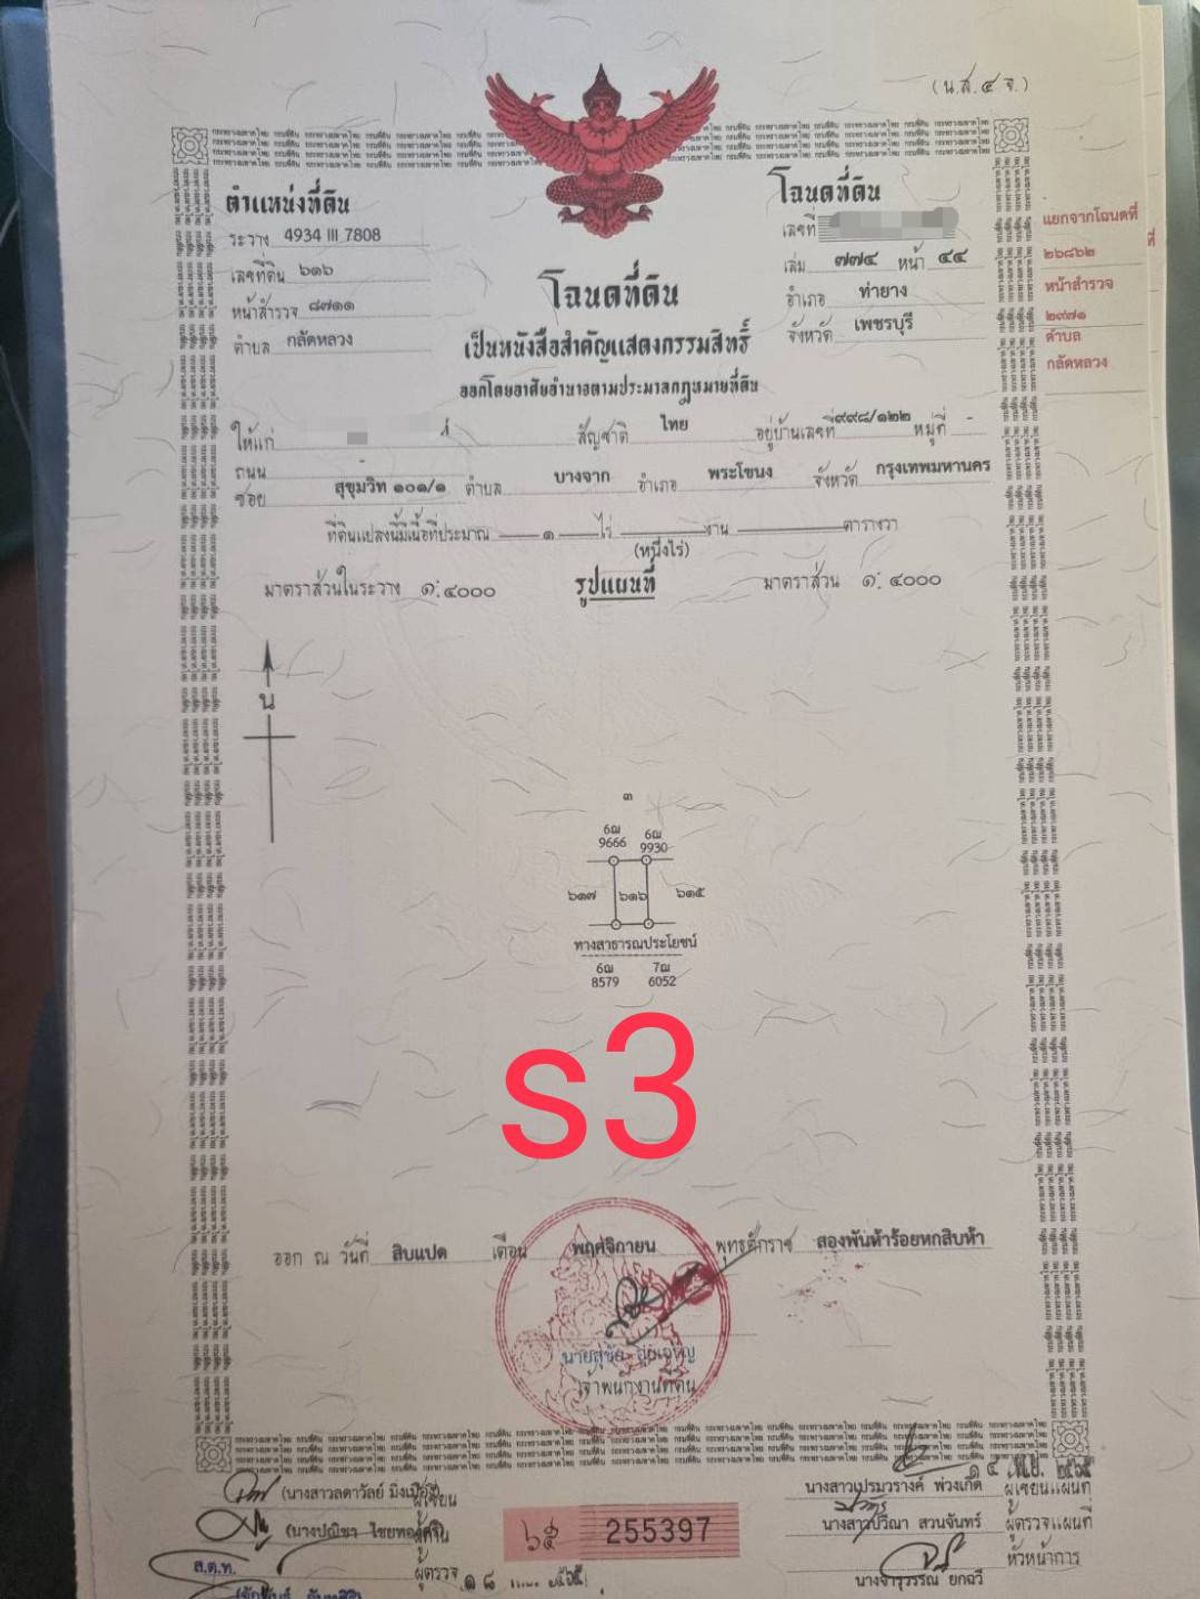 (น.ส.๔ จ.)
ตำแหน่งที่ดิน
ระวาง 4934 III 7808
เลขที่ดิน ๖๑๖
หน้าสำรวจ ๘๗๑๑
ตำบล กลัดหลวง
โฉนดที่ดิน
เลขที่
เล่ม ๗๗๔ หน้า ๔๔
อำเภอ ท่ายาง
จังหวัด เพชรบุรี
แยกจากโฉนดที่
๒๖๘๖๒
หน้าสำรวจ
๒๙๗๑
ตำบล
กลัดหลวง
โฉนดที่ดิน
เป็นหนังสือสำคัญแสดงกรรมสิทธิ์
ออกโดยอาศัยอำนาจตามประมวลกฎหมายที่ดิน
ให้แก่ สัญชาติ ไทย อยู่บ้านเลขที่ ๙๙๘/๑๒๒ หมู่ที่ -
ถนน -
ซอย สุขุมวิท ๑๐๑/๑ ตำบล บางจาก อำเภอ พระโขนง จังหวัด กรุงเทพมหานคร
ที่ดินแปลงนี้มีเนื้อที่ประมาณ ๑ ไร่ งาน ตารางวา
(หนึ่งไร่)
มาตราส่วนในระวาง ๑:๔๐๐๐ รูปแผนที่ มาตราส่วน ๑:๔๐๐๐
น
๓
6ฌ 6ฌ
9666 9930
๖๑๗ ๖๑๖ ๖๑๕
ทางสาธารณประโยชน์
6ฌ 7ฌ
8579 6052
s3
ออก ณ วันที่ สิบแปด เดือน พฤศจิกายน พุทธศักราช สองพันห้าร้อยหกสิบห้า
เจ้าพนักงานที่ดิน
(นางสาวลดาวัลย์ ผู้เขียน
ผู้ตรวจ
ส.ต.ท.
๖๕ 255397
๑๔ พ.ย. ๒๕๖๕
นางสาวเปรมวรางค์ พ่วงเกิด ผู้เขียนแผนที่
นางสาวปวีณา สวนจันทร์ ผู้ตรวจแผนที่
หัวหน้าการ
นางจารุวรรณ ยกฉวี